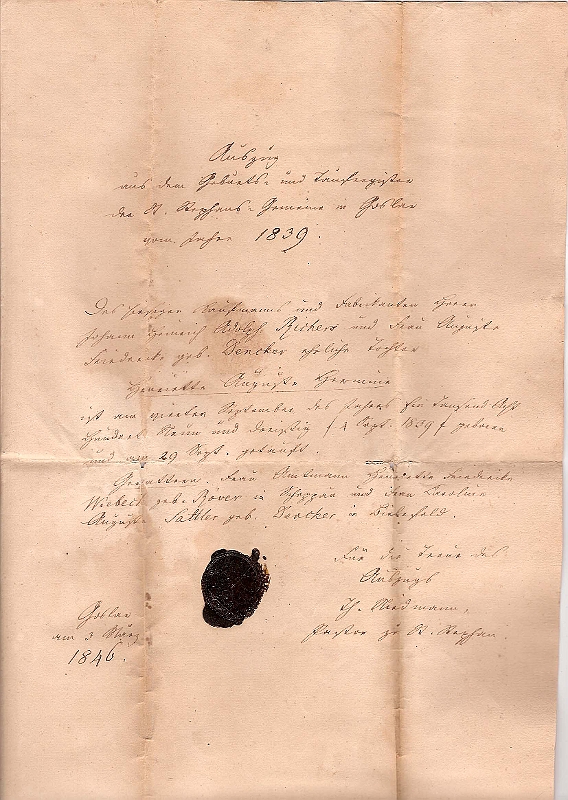 Auszug
aus dem Geburts- und Taufregister
der St. Stephans-Gemeine in Goslar
vom Jahre 1839.
Des hiesigen Kaufmanns und Fabrikanten Herrn
Johann Heinrich Adolph Richers und Frau Auguste
Friederike geb. Dencker eheliche Tochter
Henriette Auguste Hermine
ist am vierten September des Jahres Ein Tausend Acht
Hundert Neun und Dreißig / 4 Sept. 1839 / geboren
und am 29 Sept. getauft.
Gevattern: Frau Amtmann Henriette Friederike
Wiebeck geb. Bover in Schoppau und Frau Karoline
Auguste Sattler geb. Dencker in Bielefeld.
Für die Treue des
Auszugs
Th. Miedmann,
Pastor zu St. Stephan.
Goslar
am 3 März
1846.